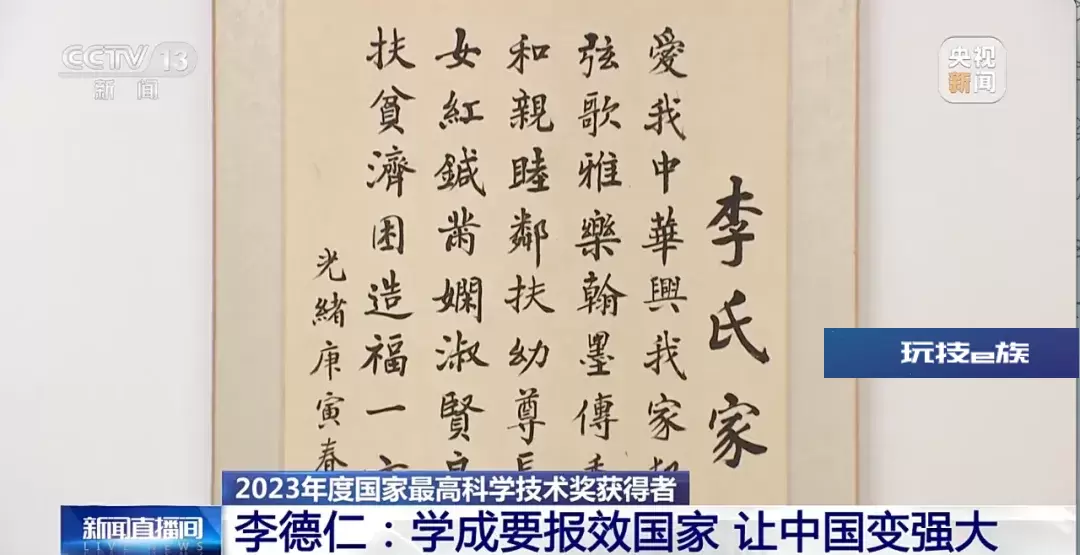 CCTV 13
新闻
央视
新闻
李氏家
愛我中華興我家
弦歌雅樂翰墨傳
和親睦鄰扶幼尊
女紅鍼黹嫻淑賢
扶貧濟困造福一
光緒庚寅春
玩技e族
2023年度国家最高科学技术奖获得者
新闻直播间
LIVE NEWS
李德仁：学成要报效国家 让中国变强大